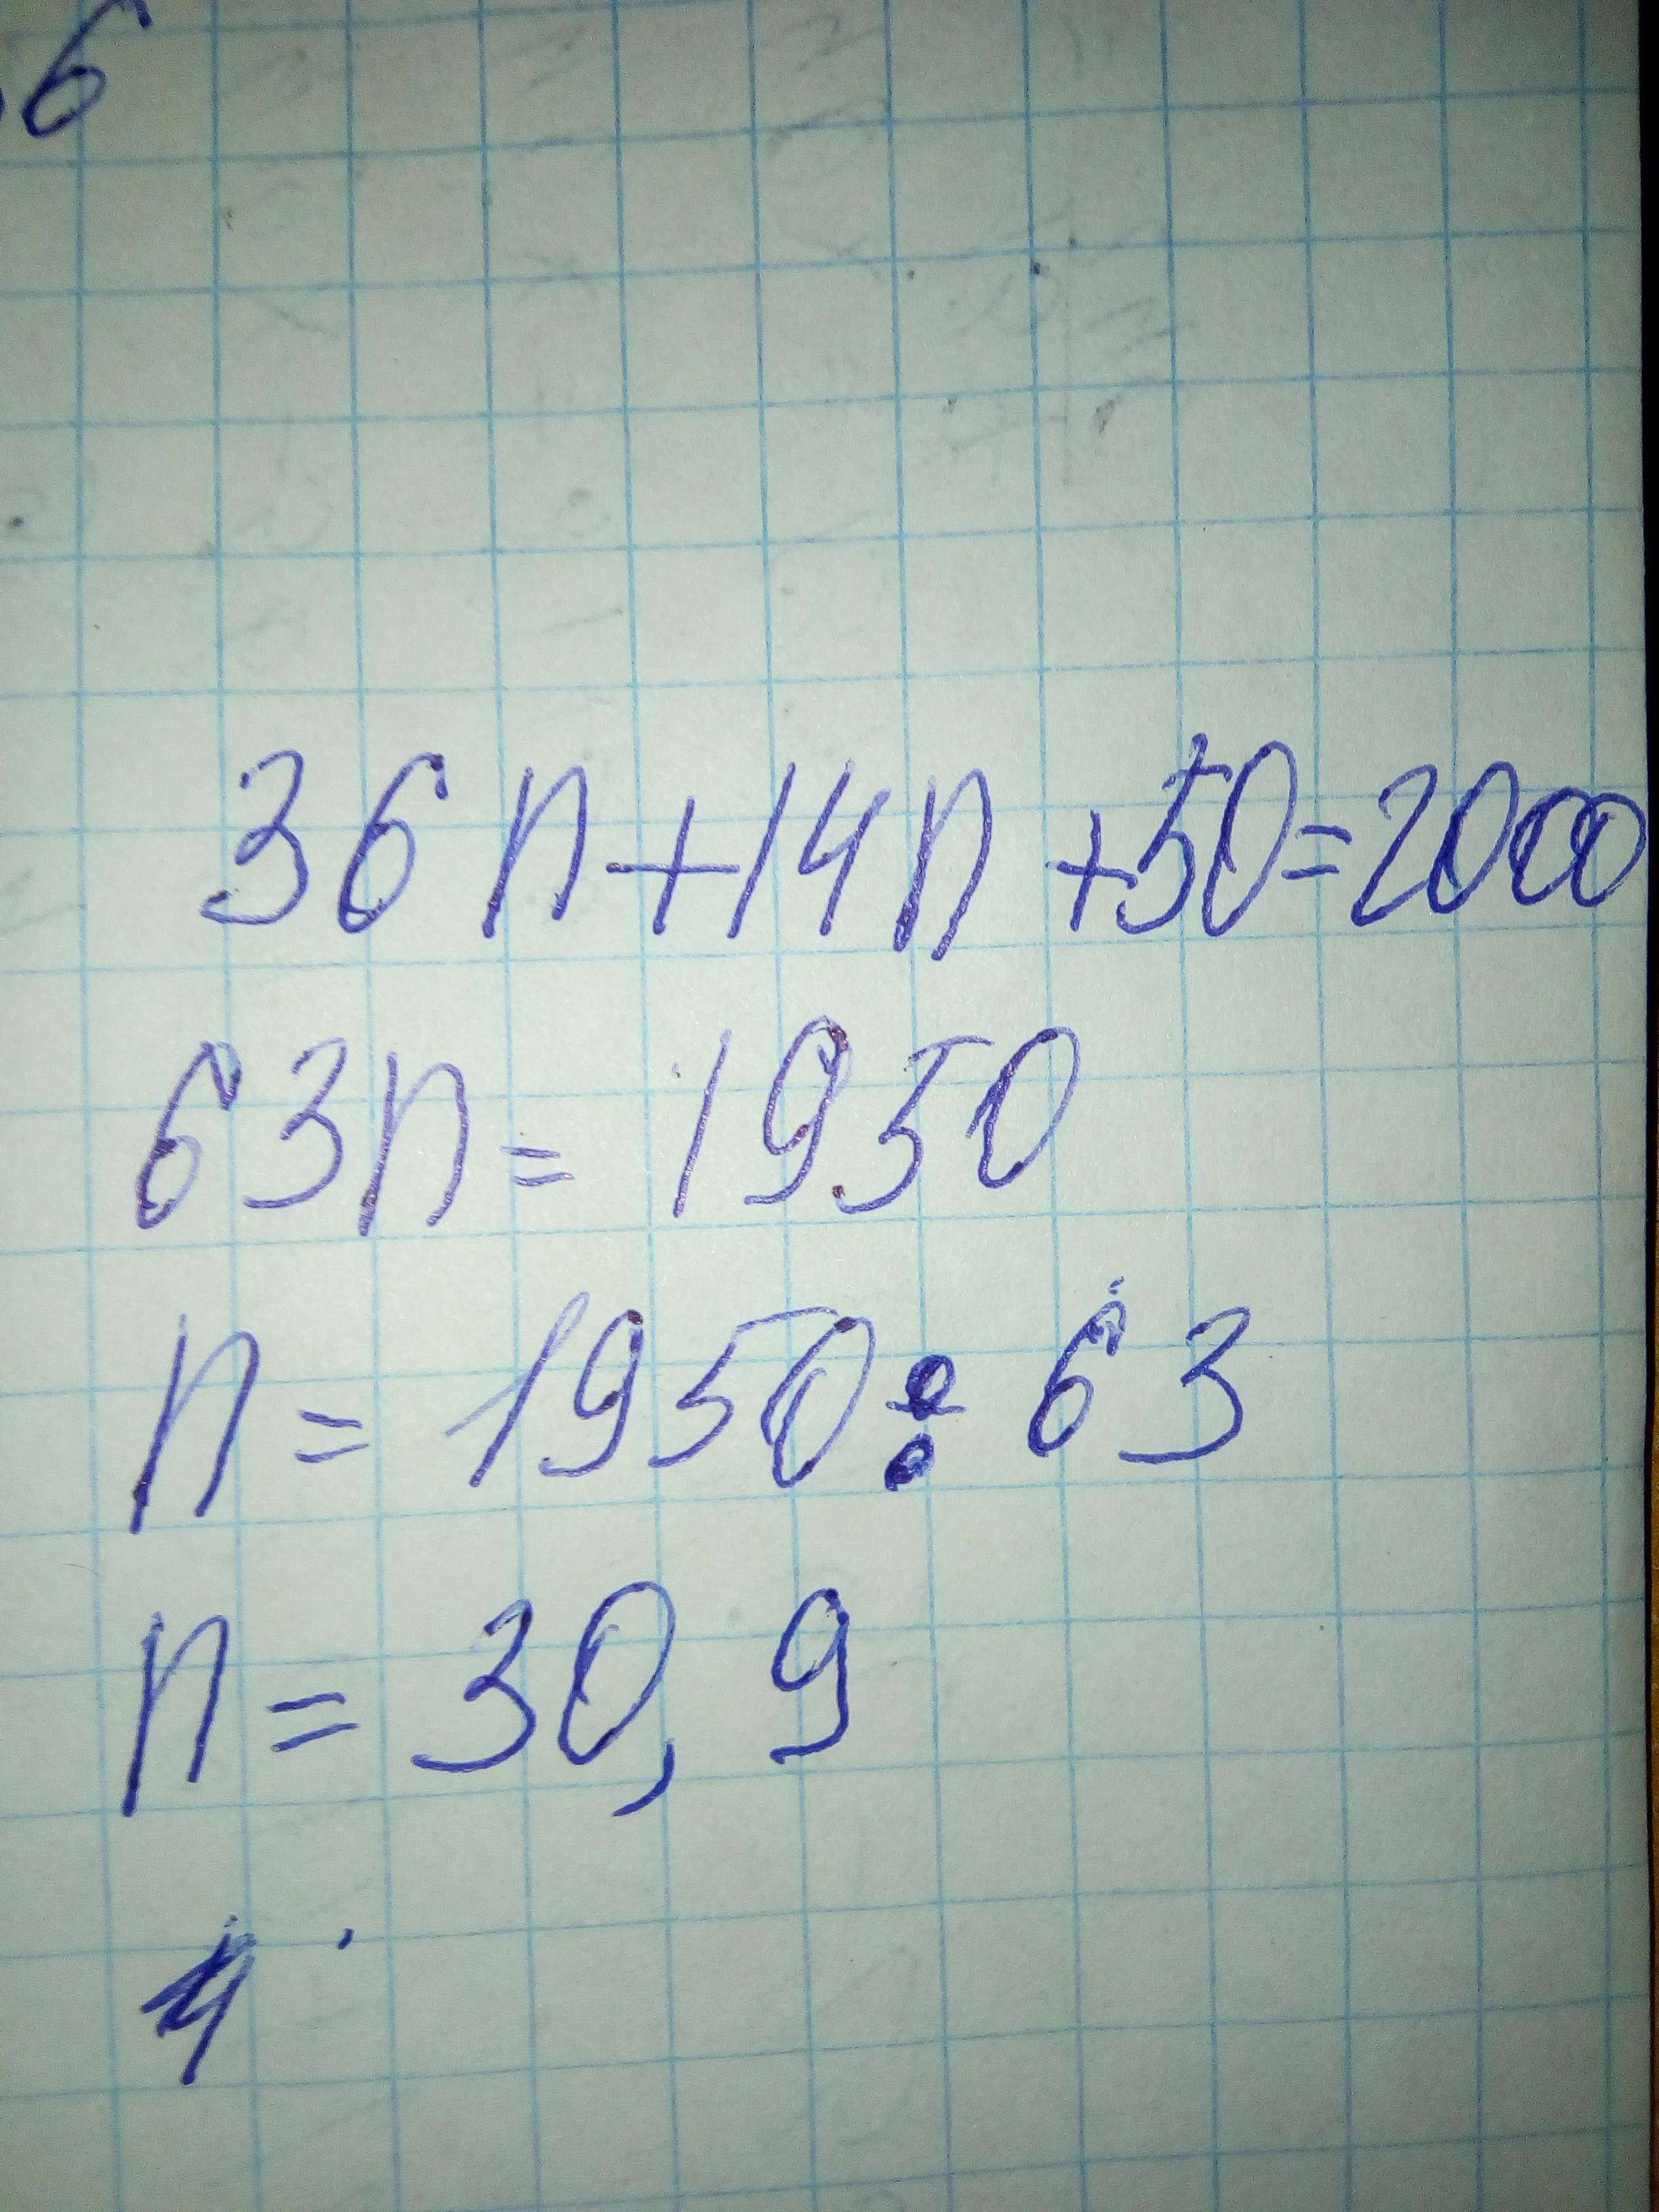 6
36n+14n+50=2000
63n=1950
n=1950:63
n=30,9